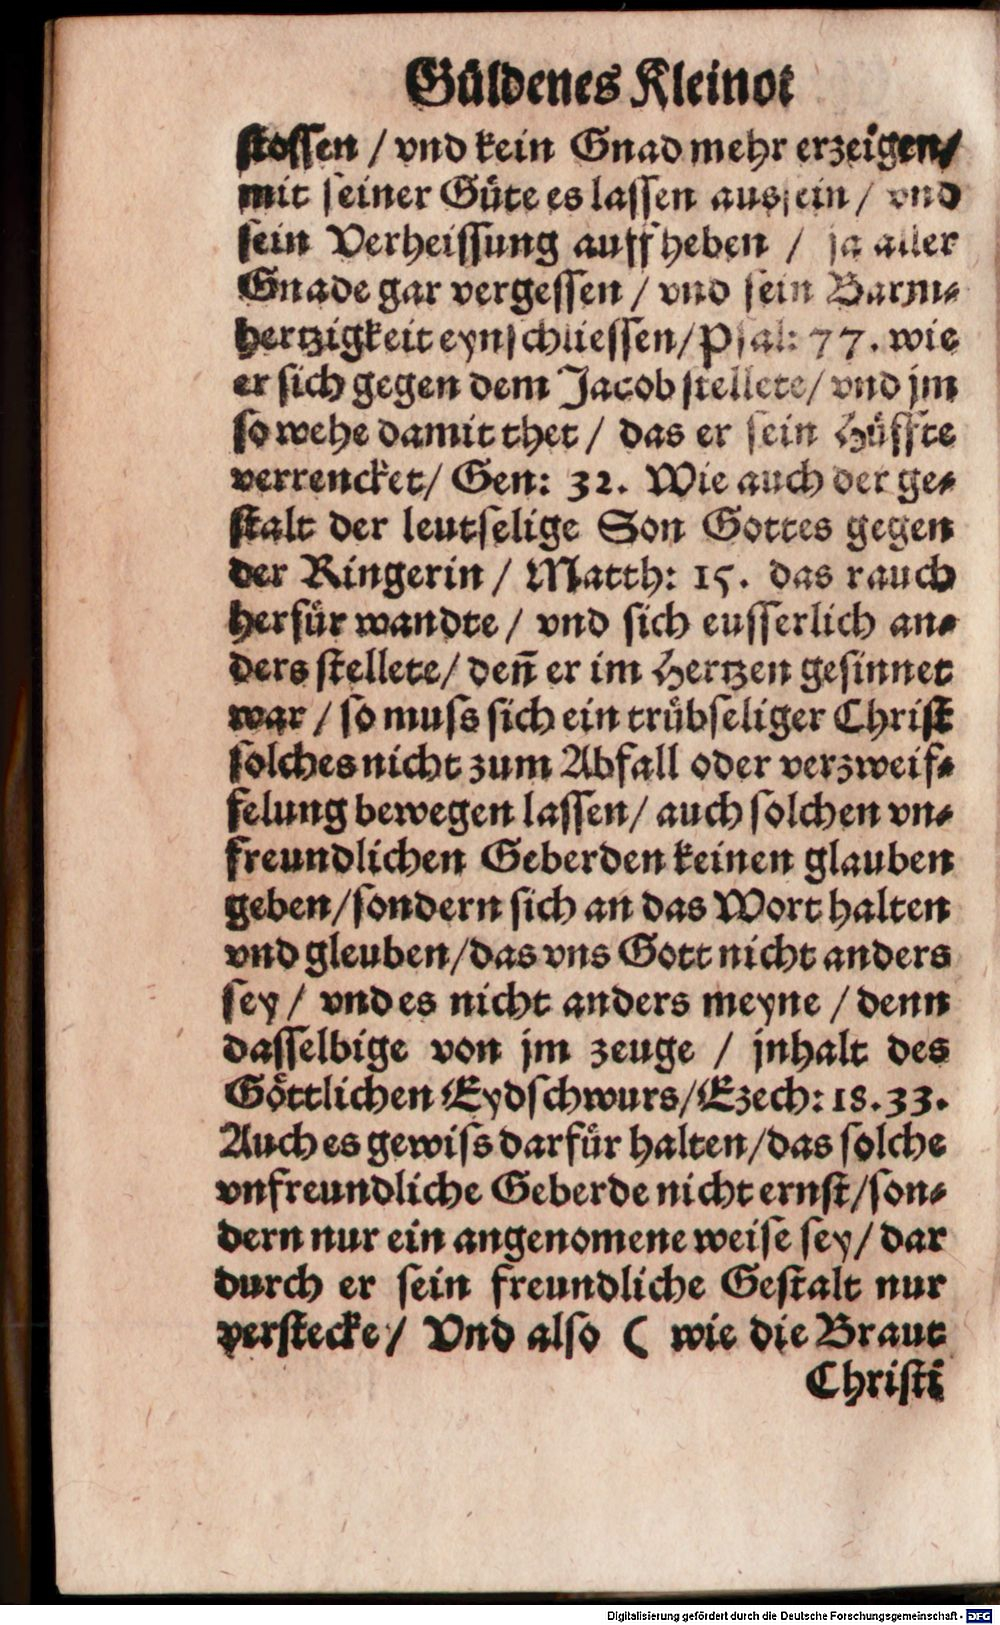 Güldenes Kleinot
stossen / vnd kein Gnad mehr erzeigen/
mit seiner Güte es lassen aus sein / vnd
sein Verheissung auff heben / ja aller
Gnade gar vergessen / vnd sein Barm-
hertzigkeit eynschliessen/Psal: 77. wie
er sich gegen dem Jacob stellete/ vnd jm
so wehe damit thet / das er sein Hüffte
verrencket/ Gen: 32. Wie auch der ge-
stalt der leutselige Son Gottes gegen
der Ringerin / Matth: 15. das rauch
herfür wandte / vnd sich eusserlich an-
ders stellete/ deñ er im Hertzen gesinnet
war / so muss sich ein trübseliger Christ
solches nicht zum Abfall oder verzweif-
felung bewegen lassen/ auch solchen vn-
freundlichen Geberden keinen glauben
geben/sondern sich an das Wort halten
vnd gleuben/das vns Gott nicht anders
sey / vnd es nicht anders meyne / denn
dasselbige von jm zeuge / jnhalt des
Göttlichen Eydschwurs/Ezech: 18. 33.
Auch es gewiss darfür halten/das solche
vnfreundliche Geberde nicht ernst/son-
dern nur ein angenomene weise sey/ dar
durch er sein freundliche Gestalt nur
verstecke/ Vnd also ( wie die Braut
Christi
Digitalisierung gefördert durch die Deutsche Forschungsgemeinschaft - DFG